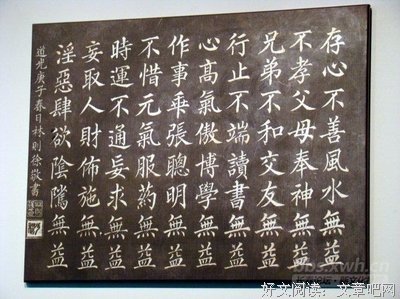 存心不善風水無益
不孝父母奉神無益
兄弟不和交友無益
行止不端讀書無益
心高氣傲博學無益
作事乖張聰明無益
不惜元氣服葯無益
時運不通妄求無益
妄取人財佈施無益
淫惡肆欲陰騭無益
道光庚子春日林則徐敬書
bbs.xwh.cn
好文阅读：文章吧网